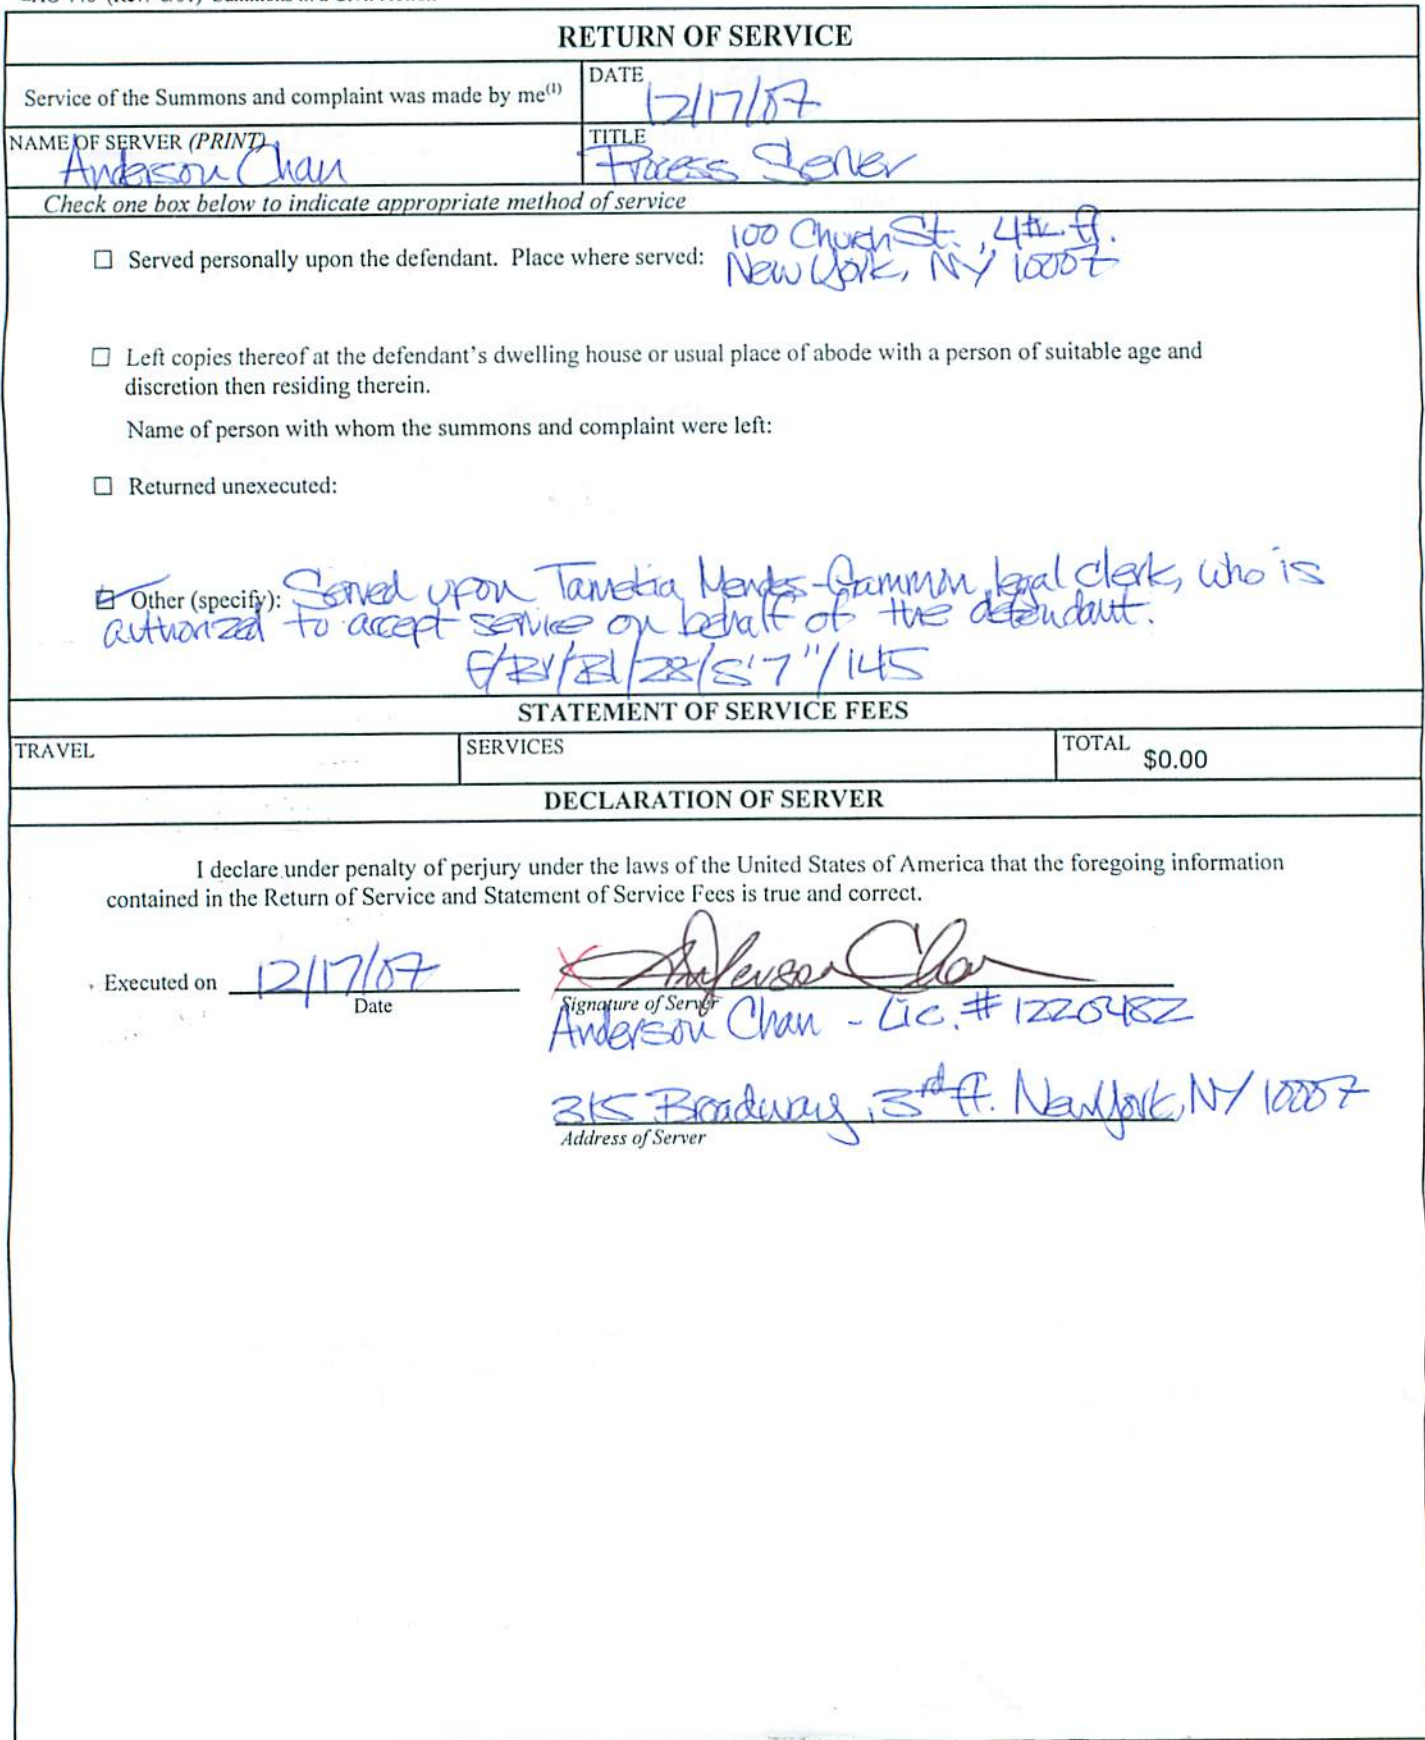 RETURN OF SERVICE
Service of the Summons and complaint was made by me(1)
DATE
12/17/07
NAME OF SERVER (PRINT)
Anderson Chan
TITLE
Process Server
Check one box below to indicate appropriate method of service
☐ Served personally upon the defendant. Place where served: 100 Church St., 4th fl.
New York, NY 10007
☐ Left copies thereof at the defendant's dwelling house or usual place of abode with a person of suitable age and
discretion then residing therein.
Name of person with whom the summons and complaint were left:
☐ Returned unexecuted:
☑ Other (specify): Served upon Mendes-Grammon, legal clerk, who is
authorized to accept service on behalf of the defendant.
F/Bl/Bl/28/5'7"/145
STATEMENT OF SERVICE FEES
TRAVEL
SERVICES
TOTAL
$0.00
DECLARATION OF SERVER
I declare under penalty of perjury under the laws of the United States of America that the foregoing information
contained in the Return of Service and Statement of Service Fees is true and correct.
Executed on 12/17/07
Date
X Anderson Chan
Signature of Server
Anderson Chan - Lic. # 1220482
315 Broadway, 3rd fl. New York, NY 10007
Address of Server